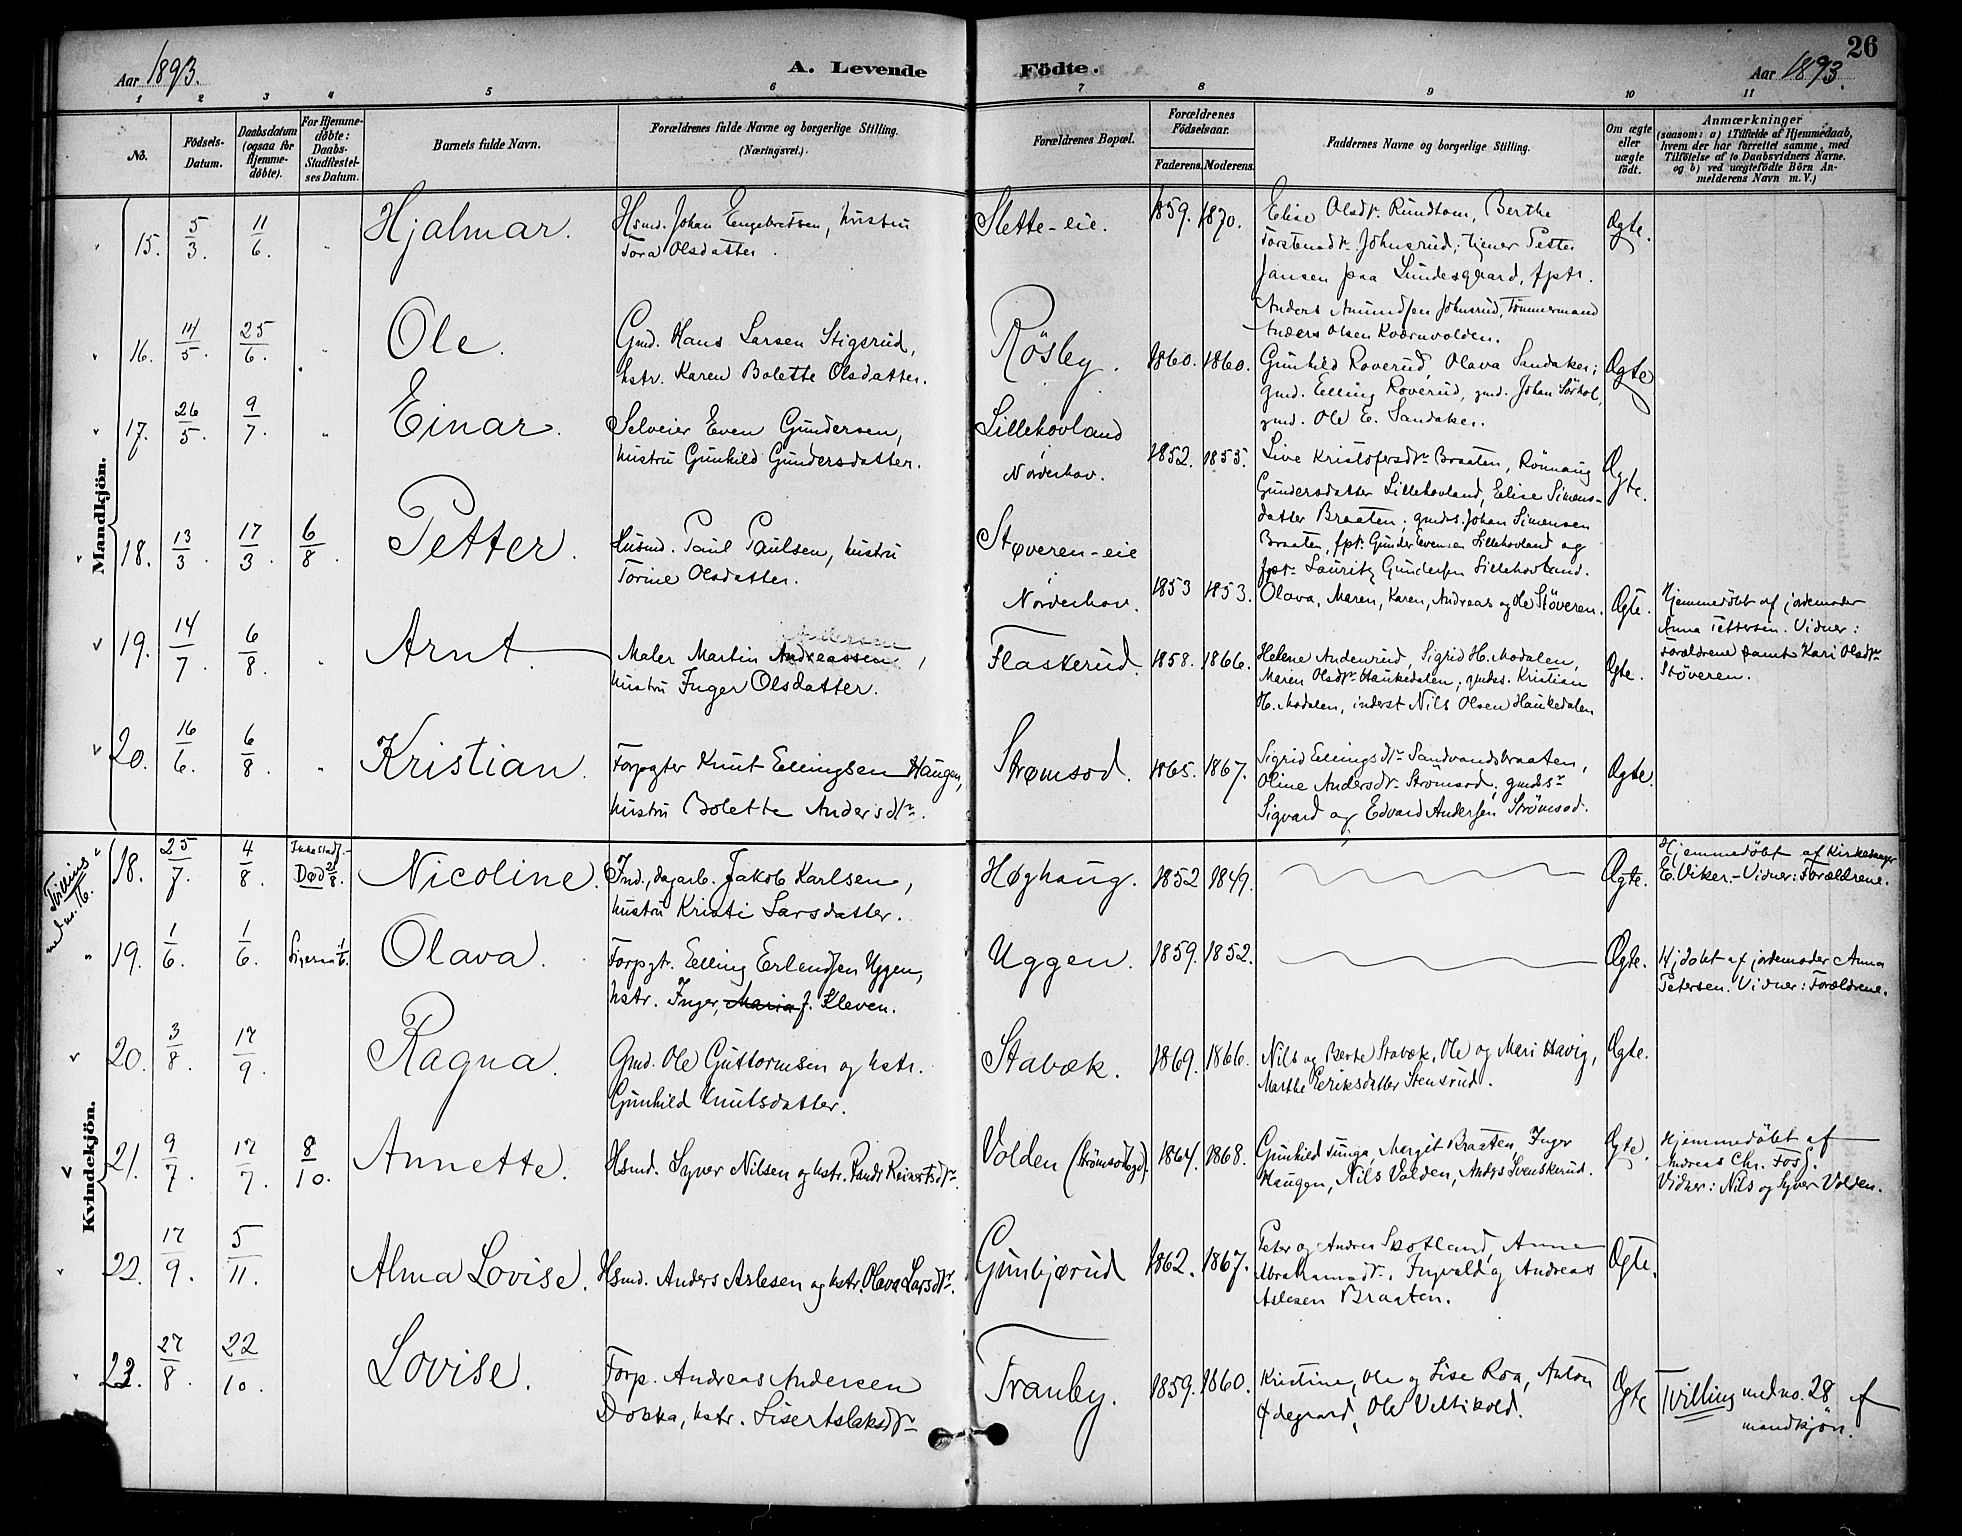 26
Aar 1893. A. Levende Födte. Aar 1893.
1 2 3 4 5 6 7 8 9 10 11
No.
Födsels-
Datum.
Daabsdatum
(ogsaa for
Hjemme-
døbte).
For Hjemme-
døbte:
Daabs-
Stadfæstel-
ses Datum.
Barnets fulde Navn.
Forældrenes fulde Navne og borgerlige Stilling.
(Næringsvei.)
Forældrenes Bopæl.
Forældrenes
Födselsaar.
Faderens. Moderens.
Faddernes Navne og borgerlige Stilling.
Om ægte
eller
uægte
født.
Anmærkninger
(saasom: a) i Tilfælde af Hjemmedaab,
hvem der har forrettet samme, med
Tilföielse af to Daabsvidners Navne.
og b) ved uægtefödte Börn An-
melderens Navn m. V.)
Mandkjön.
15. 5/3. 11/6. " Hjalmar.
Hsmd. Johan Engebretsen, hustru
Tora Olsdatter.
Slette-eie. 1859. 1870.
Elise Olsdr. Rundtom, Berthe
Torstensdr. Johnsrud; tjener Petter
Jansen paa Lundesgaard, fptr.
Anders Amundsen Johnsrud, Tømmermand
Anders Olsen Kværnvolden.
Ægte.
16. 14/5. 25/6. " Ole.
Gmd. Hans Larsen Stigsrud,
hstr. Karen Bolette Olsdatter.
Rösby. 1860. 1860.
Gunhild Roverud, Olava Sandaker;
gmd. Elling Roverud, gmd. Johan Sörhol,
gmd. Ole E. Sandaker.
Ægte
17. 26/5. 9/7. " Einar.
Selveier Even Gundersen,
hustru Gunhild Gundersdatter.
Lillehovland
Norderhov.
1852. 1855.
Live Kristofersdr. Braaten, Rönnaug
Gundersdatter Lillehovland, Elise Simens-
datter Braaten; gmds. Johan Simensen
Braaten, fptr. Gunder Evensen Lillehovland og
fptr. Lauritz Gundersen Lillehovland.
Ægte.
18. 13/3. 17/3. 6/8. Petter.
Husmd. Paul Paulsen, hustru
Torine Olsdatter.
Støveren-eie
Norderhov.
1853 1853.
Olava, Maren, Karen, Andreas og Ole Stöveren.
Ægte.
Hjemmedöbt af jordemoder
Anna Pettersen. Vidner:
Forældrene samt Kari Olsdr.
Stöveren.
19. 14/7. 6/8. " Arnt.
Maler Martin Andreassen,
hustru Inger Olsdatter.
Flaskerud. 1858. 1866.
Helene Andenrud, Sigrid H. Modalen,
Maren Olsdr. Haukedalen; gmds. Kristian
H. Modalen, inderst Nils Olsen Haukedalen
Ægte.
20. 16/6. 6/8. " Kristian.
Forpagter Knut Ellingsen Haugen,
hustru Bolette Andersdtr.
Strømsod. 1865. 1867.
Sigrid Ellingsdtr. Sandvandsbraaten,
Oline Andersdr. Strømsod; gmds.
Sigvard og Edvard Andersen Strömsod.
Ægte.
Kvindekjön.
Tvilling
med no. 16.
18. 25/7. 4/8. Ikke stadf. Død 2/8. Nicoline.
Ind., dagarb. Jakob Karlsen,
hustru Kristi Larsdatter.
Høghaug. 1852 1849. Ægte.
Hjemmedöbt af Kirkesanger
E. Viker. Vidner: Forældrene.
19. 1/6. 1/6. Olava.
Forpgt. Elling Erlendsen Uggen,
hstr. Inger, Maria J. Kleven.
Uggen. 1859. 1852. Ægte.
Hjdöbt af jordemoder Anna
Petersen. Vidner: Forældrene.
20. 3/8. 17/9. Ragna.
Gmd. Ole Guttormsen og hstr.
Gunhild Knutsdatter.
Stabæk. 1869. 1866.
Nils og Berte Stabæk, Ole og Mari Havig,
Marthe Eeriksdatter Stensrud.
Ægte.
21. 9/7. 17/7. 8/10. Annette.
Hsmd. Syver Nilsen og hstr. Randi Reinertsdr.
Volden 1864. 1868.
Gunhild Tunga, Margit Braaten, Inger
Haugen, Nils Volden, Anders Svenskerud.
Ægte.
Hjemmedöbt af
Andreas Chr. Foss.
Vidner: Nils og Syver Volden.
22. 17/9. 5/11. Alma Lovise.
Hsmd. Anders Aslesen og hstr. Olava Larsdr.
Gunbjørud 1862. 1867.
Peter og Andrea Skotland, Anne
Abrahamsdr., Ingvald og Andreas
Aslesen Braaten.
Ægte.
23. 27/8. 22/10. Lovise.
Forp. Andreas Andersen
Dokka, hstr. Lise Aslaksdr.
Tranby. 1859. 1860.
Kristine, Ole og Lise Roa, Anton
Ødegaard, Ole Veltikold.
Ægte
Tvilling med no. 28 af
mandkjön.